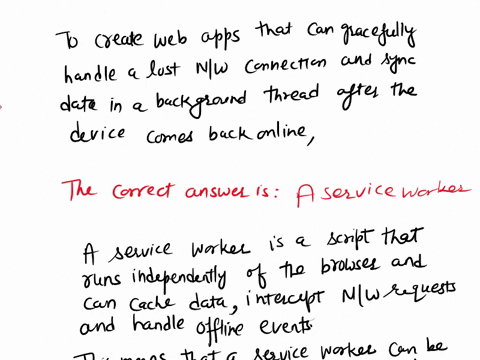 To create web apps that can gracefully
handle a lost N/W connection and sync
data in a background thread after the
device comes back online,
The correct answer is: A service worker
A service worker is a script that
runs independently of the browser and
can cache data, intercept N/W requests
and handle offline events
This means that a service worker can be